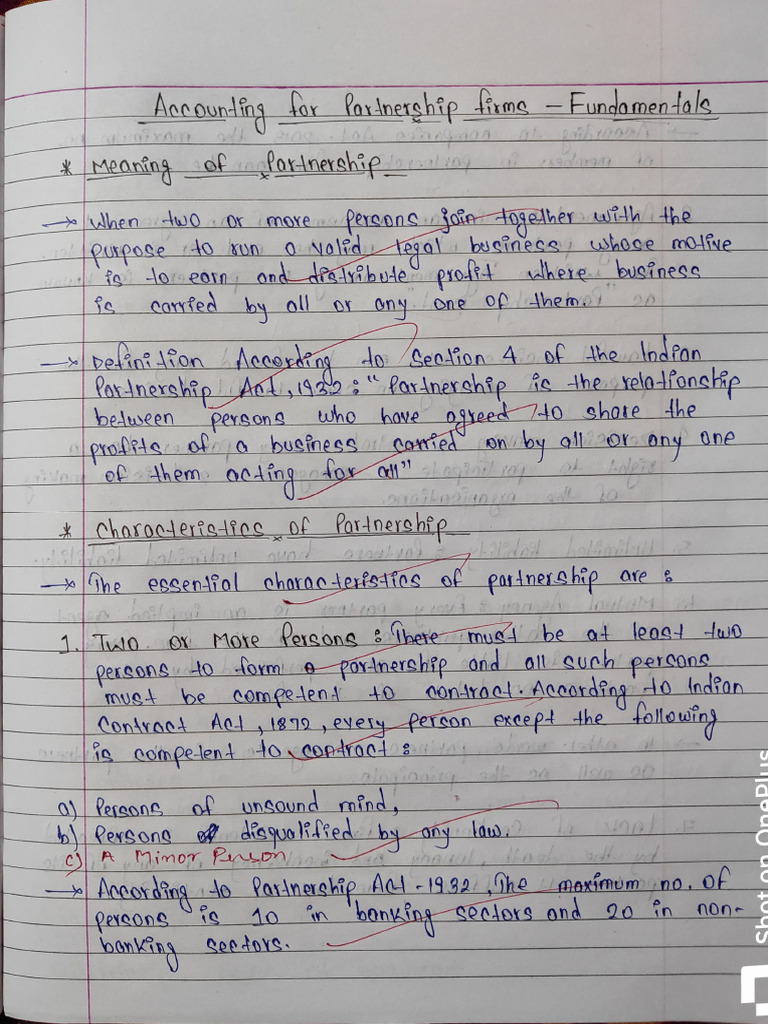 Accounting for Partnership firms - Fundamentals
* Meaning of Partnership
→ When two or more persons join together with the
purpose to run a valid legal business, whose motive
is to earn and distribute profit where business
is carried by all or any one of them.
→ Definition According to Section 4 of the Indian
Partnership Act, 1932 : "Partnership is the relationship
between persons who have agreed to share the
profits of a business carried on by all or any one
of them acting for all"
* Characteristics of Partnership
→ The essential characteristics of partnership are :
1. Two or More Persons : There must be at least two
persons to form a partnership and all such persons
must be competent to contract. According to Indian
Contract Act, 1872, every person except the following
is competent to contract :
a) Persons of unsound mind,
b) Persons disqualified by any law.
c) A Minor Person
→ According to Partnership Act - 1932, The maximum no. of
persons is 10 in banking sectors and 20 in non-
banking sectors.
Shot on OnePlus